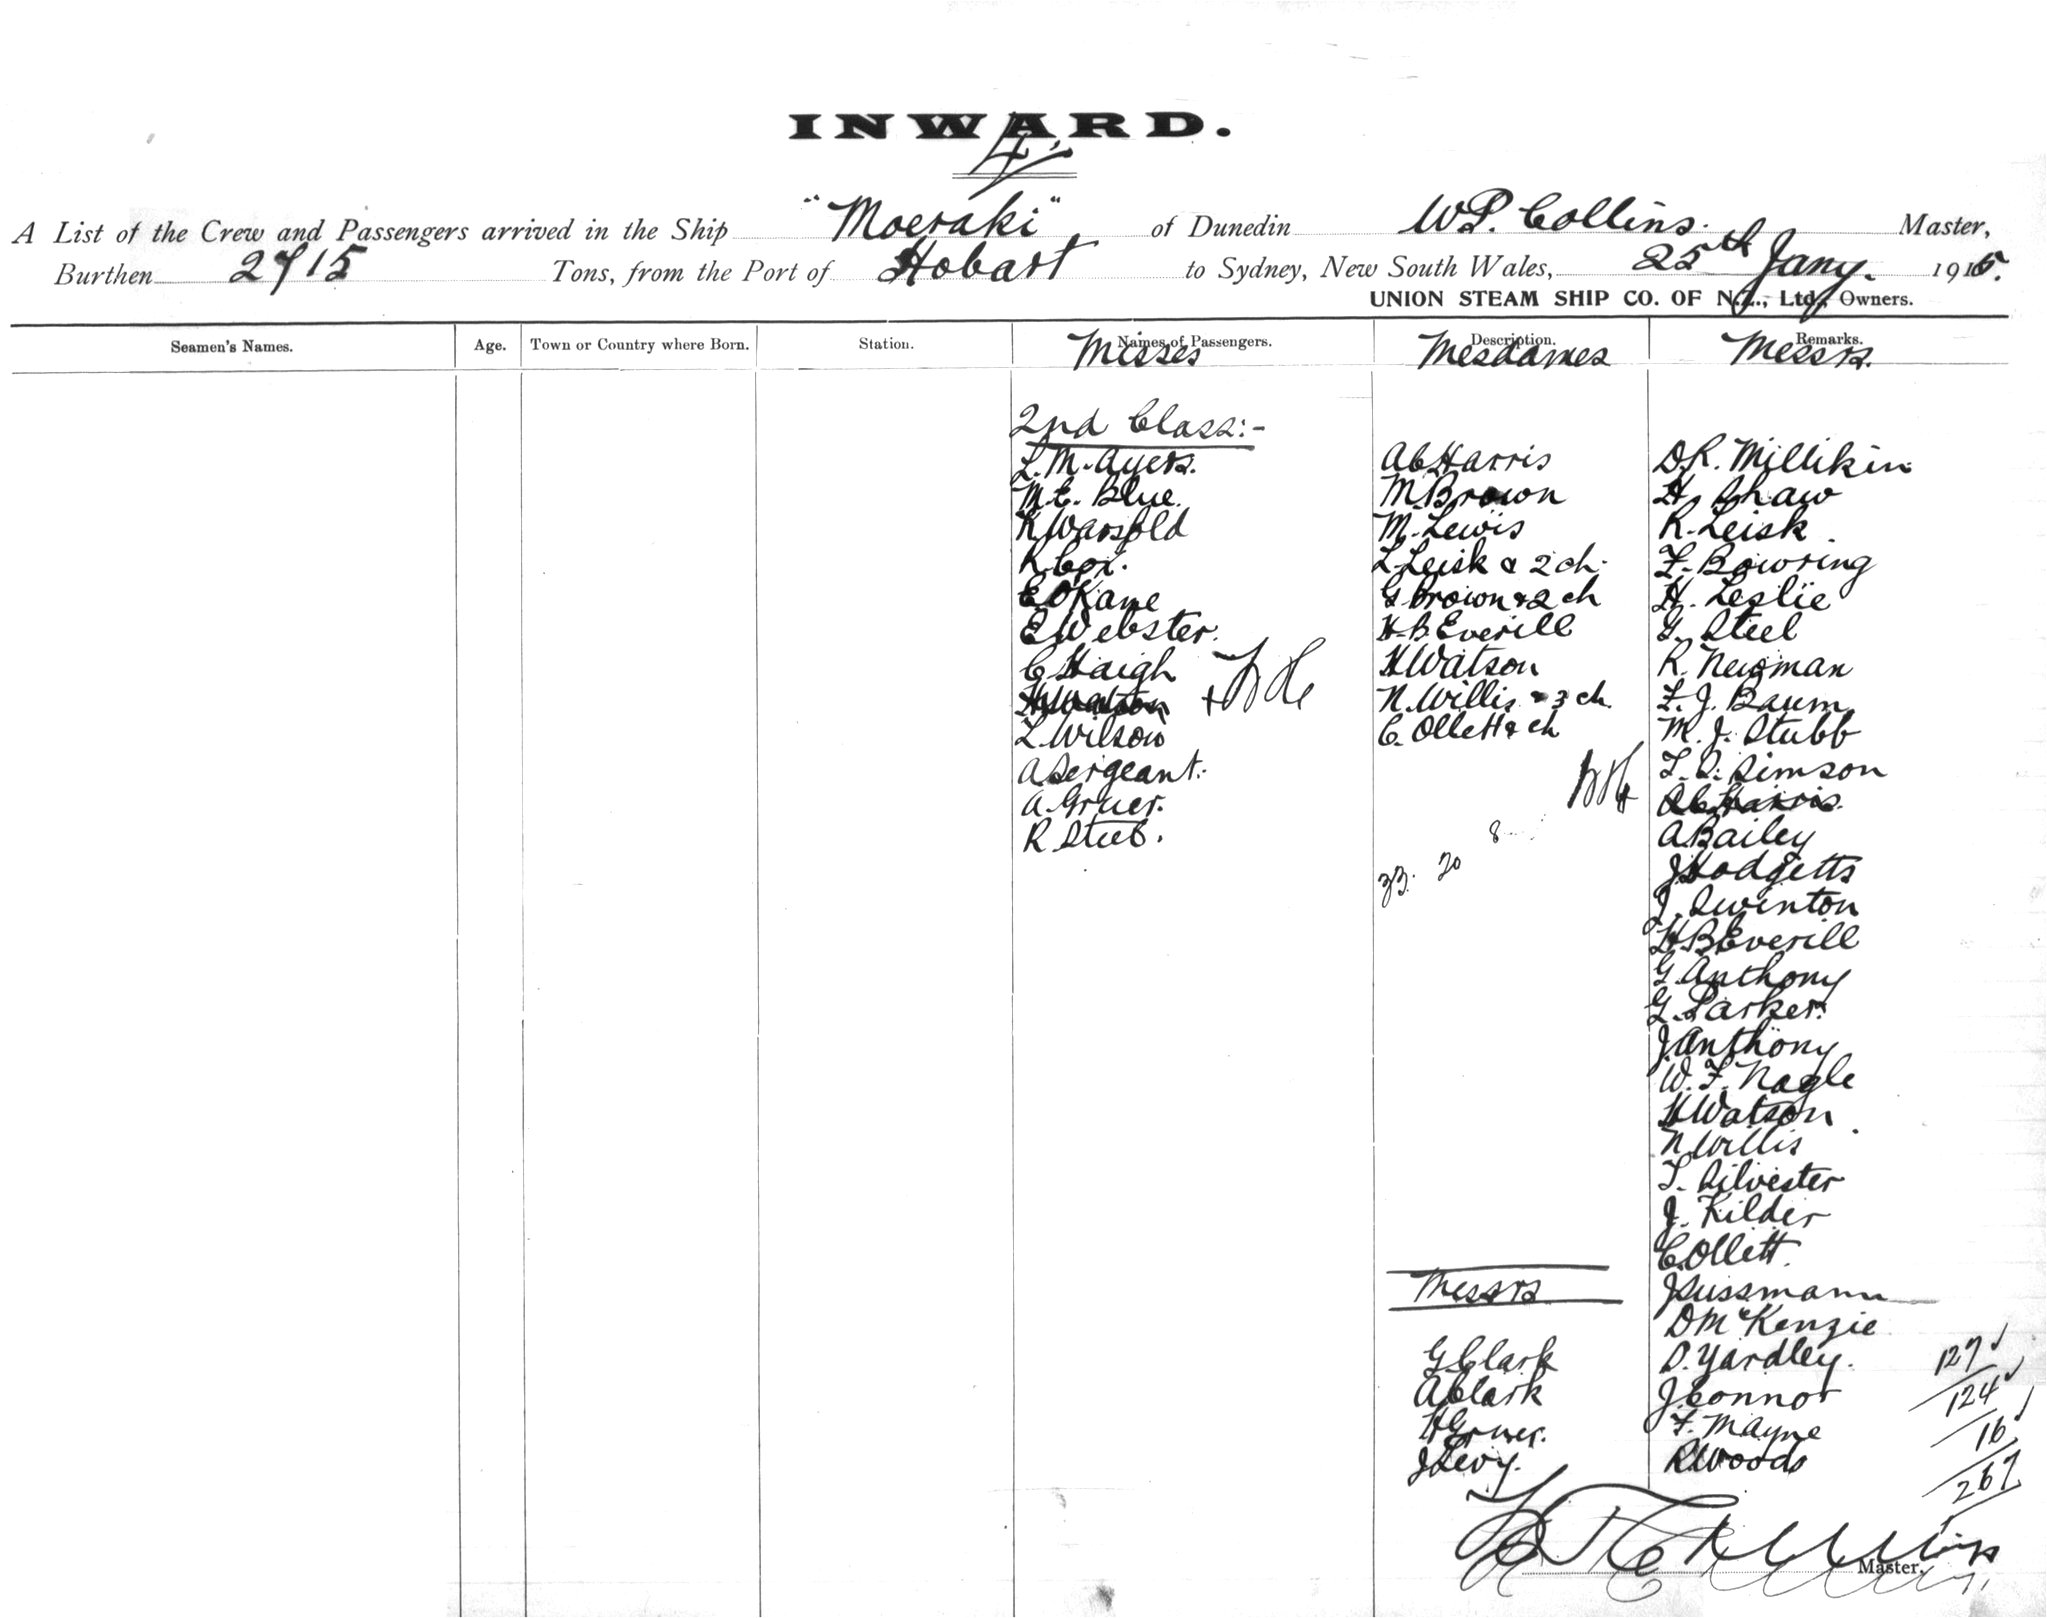 INWARD.
4
A List of the Crew and Passengers arrived in the Ship "Moeraki" of Dunedin W.P. Collins. Master,
Burthen 2715 Tons, from the Port of Hobart to Sydney, New South Wales, 25th Jany. 1915.
UNION STEAM SHIP CO. OF N.Z., Ltd., Owners.
Seamen's Names. Age. Town or Country where Born. Station. Names of Passengers. Description. Remarks.
Misses Mesdames Messrs.
2nd Class:-
L. M. Ayers.
M. E. Blue.
K Warsfold
R Cox.
E OKane
E Webster.
C Haigh
H Watson
L. Wilson
A Sergeant.
A. Gruer.
R Steel.
A C Harris
M Brown
M. Lewis
L. Leisk & 2 ch.
G Brown & 2 ch
H. B Everill
H Watson
N. Willis & 3 ch.
C. Ollett & ch
33. 20 8
Messrs
G Clark
A Clark
H Gruer.
J Levy.
D. R. Millikin
H. Shaw
R. Leisk.
F. Bowring
H. Leslie
G. Steel
R. Newman
F. J. Baum
M. J. Stubb
T. S. Simson
A C Harris.
A Bailey
J Hodgetts
J. Swinton
H B Everill
G Anthony
G. Parker.
J Anthony
W. F. Nagle
H Watson.
N Willis
T. Silvester
J. Kilder
C. Ollett.
J Sussmann
D McKenzie
D. Yardley.
J. Connor
F. Mayne
R Woods
127
124
16
267
Master.